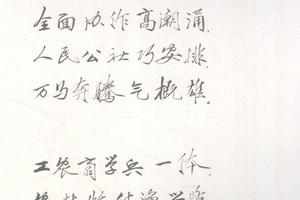 全面协作高潮涌，
人民公社巧安排，
万马奔腾气概雄。
工农商学兵一体，